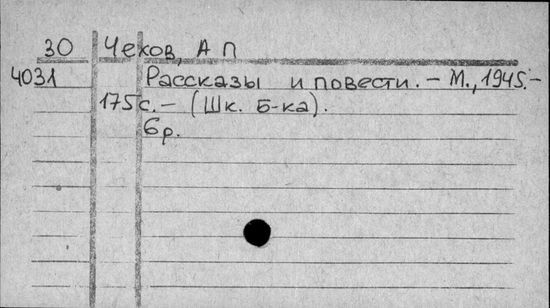 30 Чехов, А П
4031 Рассказы и повести. – М., 1945. –
175 с. – (Шк. Б-ка).
6р.